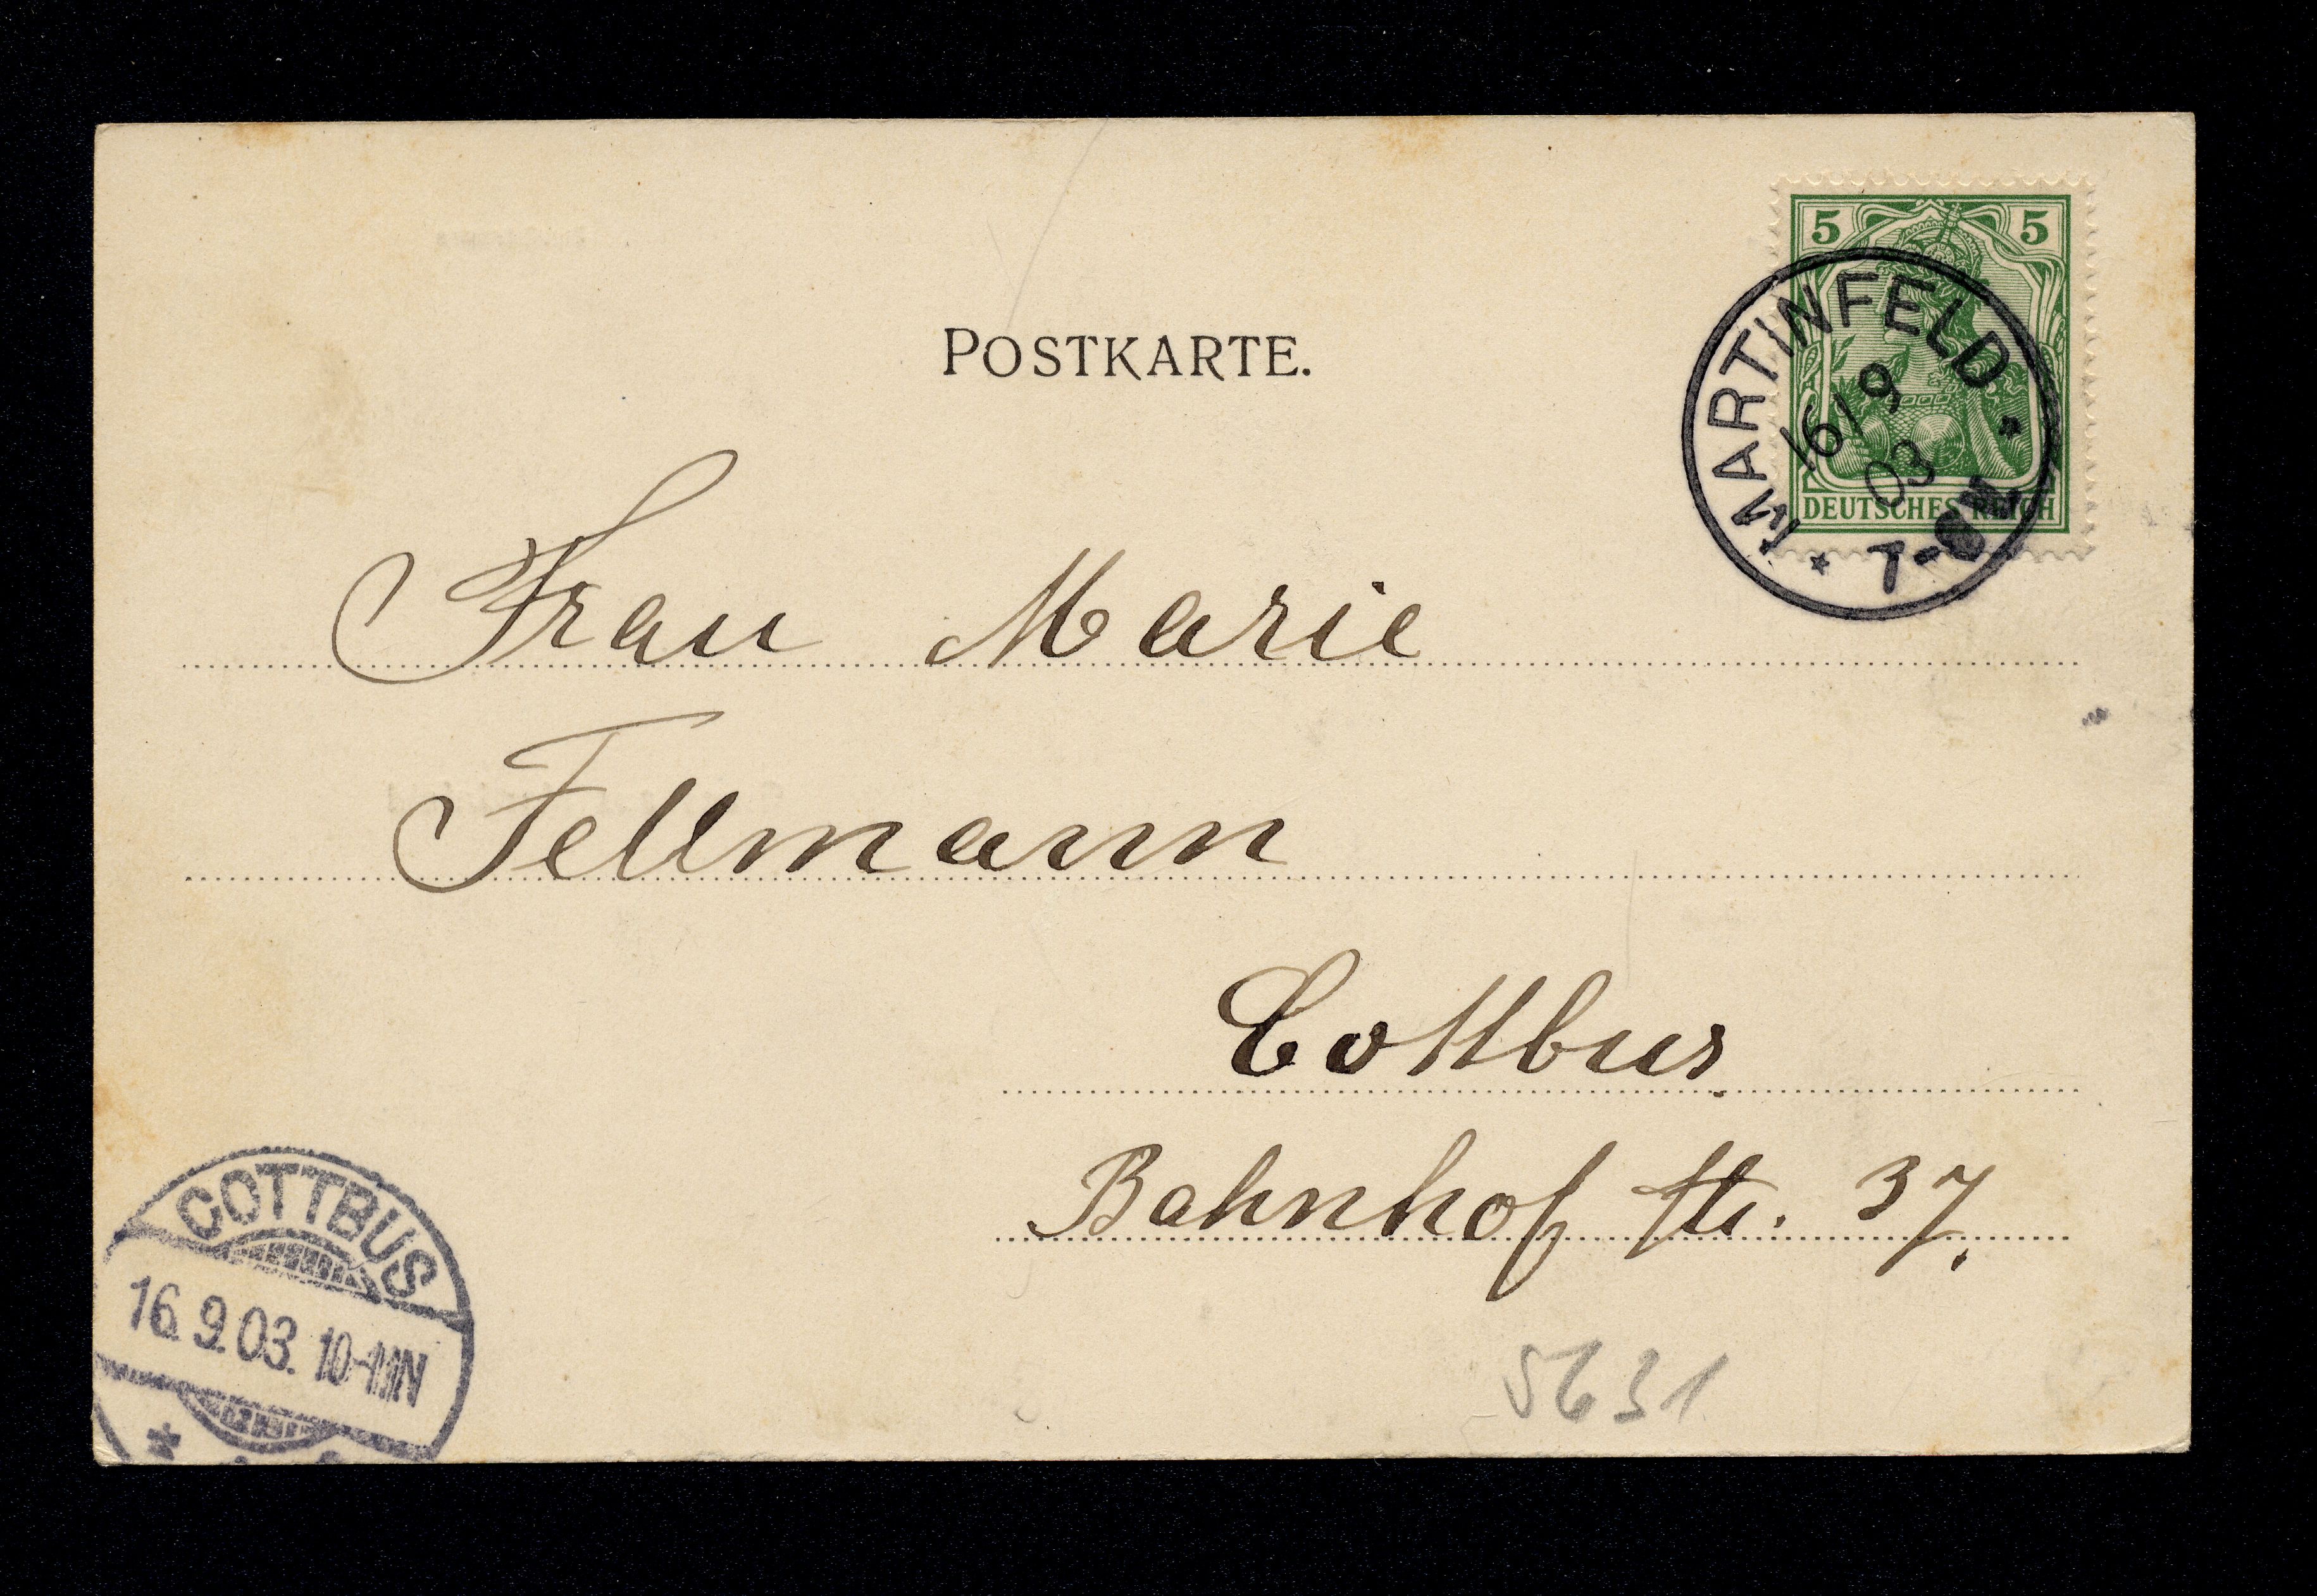 5 5
DEUTSCHES REICH
MARTINFELD
16/9
03
7-8N
POSTKARTE.
Frau Marie
Fellmann
Cottbus
Bahnhofstr. 37.
COTTBUS
16.9.03. 10-11N
5631